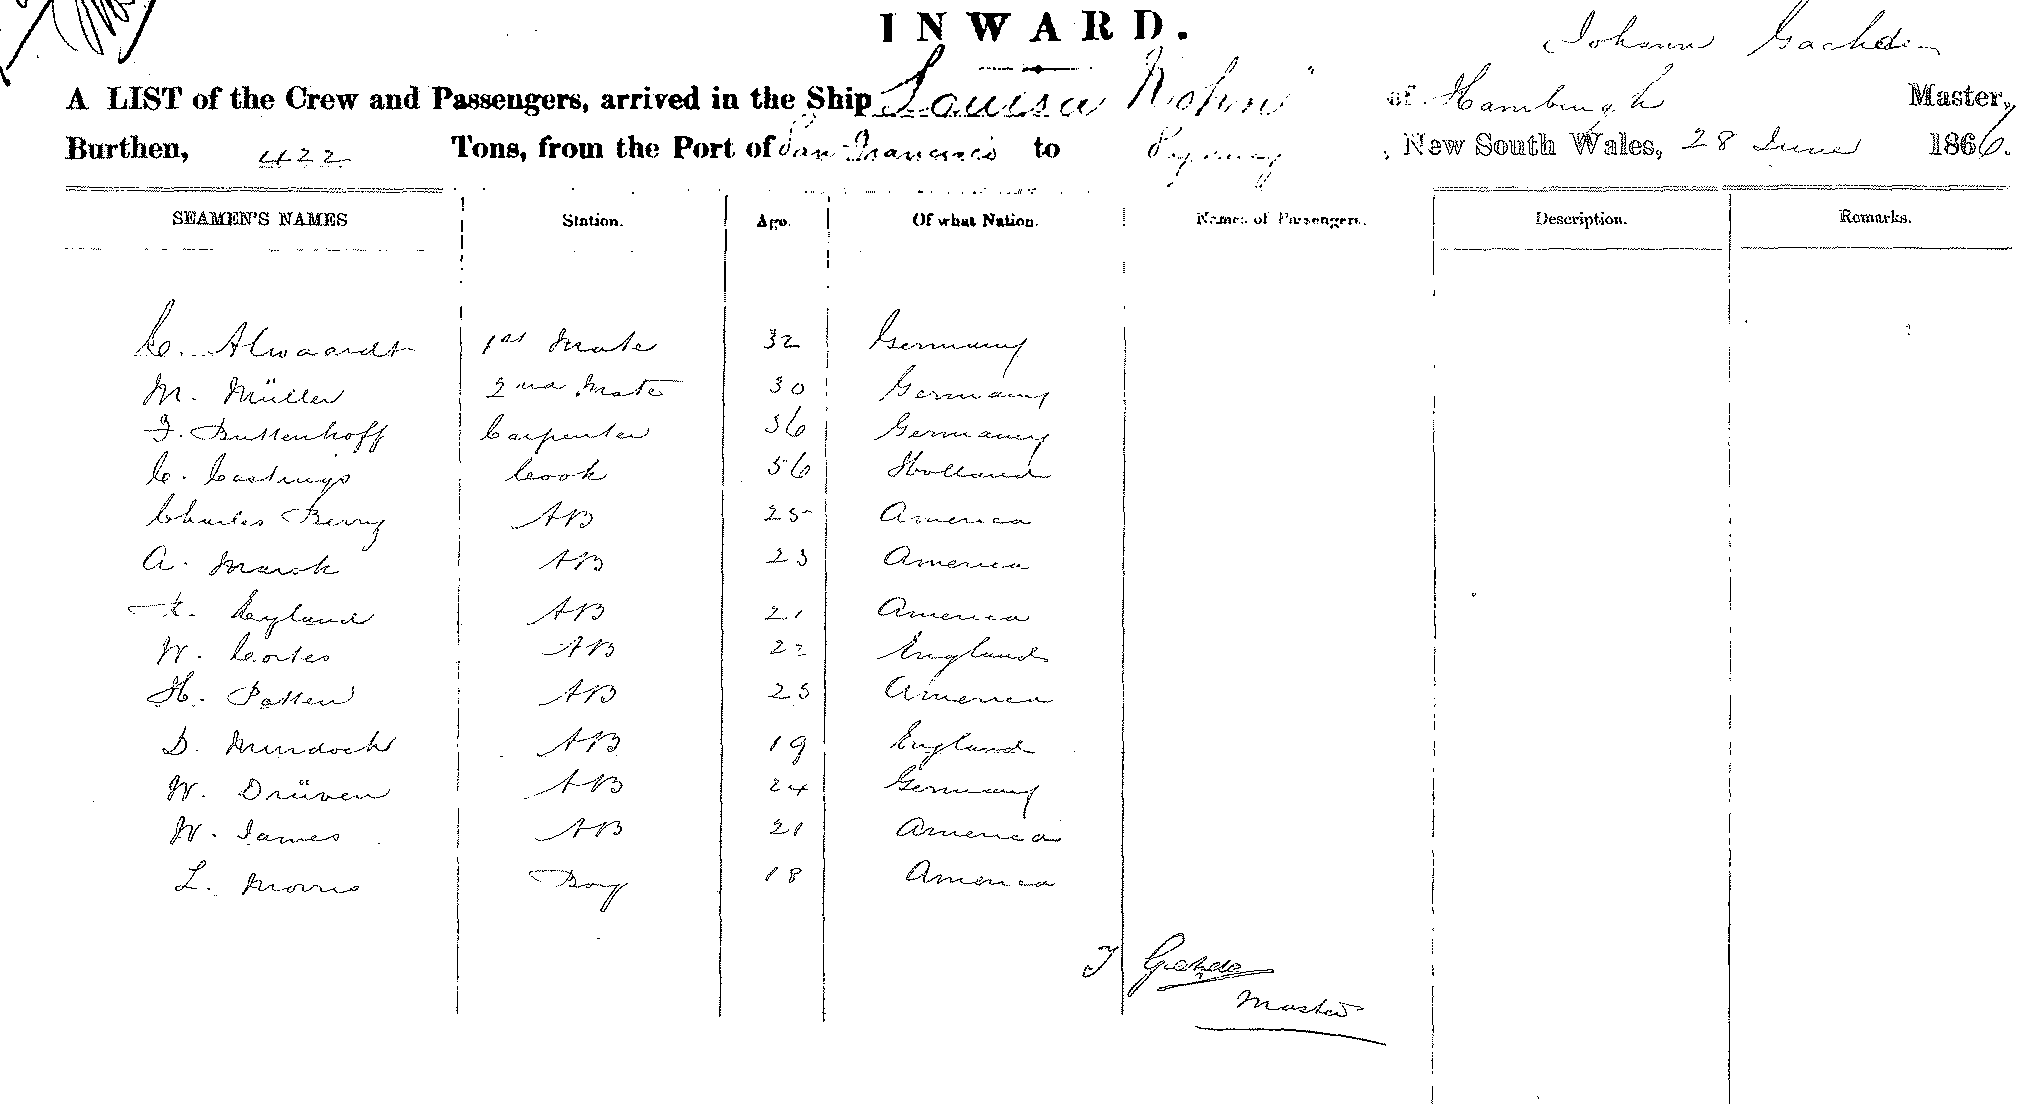 INWARD.
Johann
A LIST of the Crew and Passengers, arrived in the Ship Louisa Kohn" of Hamburgh Master,
Burthen, 422 Tons, from the Port of San Francisco to Sydney, New South Wales, 28 June 1866.
SEAMEN'S NAMES Station. Age. Of what Nation. Names of Passengers. Description. Remarks.
C. Alwaardt 1st Mate 32 Germany
M. Müller 2nd Mate 30 Germany
F. Buttenhoff Carpenter 36 Germany
C. Castings Cook 56 Holland
Charles Berry AB 25 America
A. AB 23 America
Leyland AB 21 America
W. Coates AB 22 England
H. Patten AB 25 America
D. Murdock AB 19 England
W. Drüven AB 24 Germany
W. James AB 21 America
L. Morris Boy 18 America
J
Master